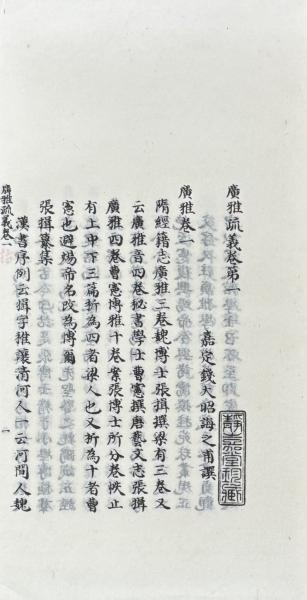 廣雅疏義卷第一
嘉定錢大昭誨之甫譔
廣雅卷一
隋經籍志廣雅三卷魏博士張揖撰梁有三卷又
云廣雅音四卷秘書學士曹憲撰唐藝文志張揖
廣雅四卷曹憲博雅十卷案張博士所分卷帙止
有上中下三篇析為四者梁人也又析為十者曹
憲也避煬帝名改為博爾
張揖纂集
漢書序例云揖字稚讓清河人一云河間人魏
廣雅疏義卷一
一
靜嘉堂珍藏